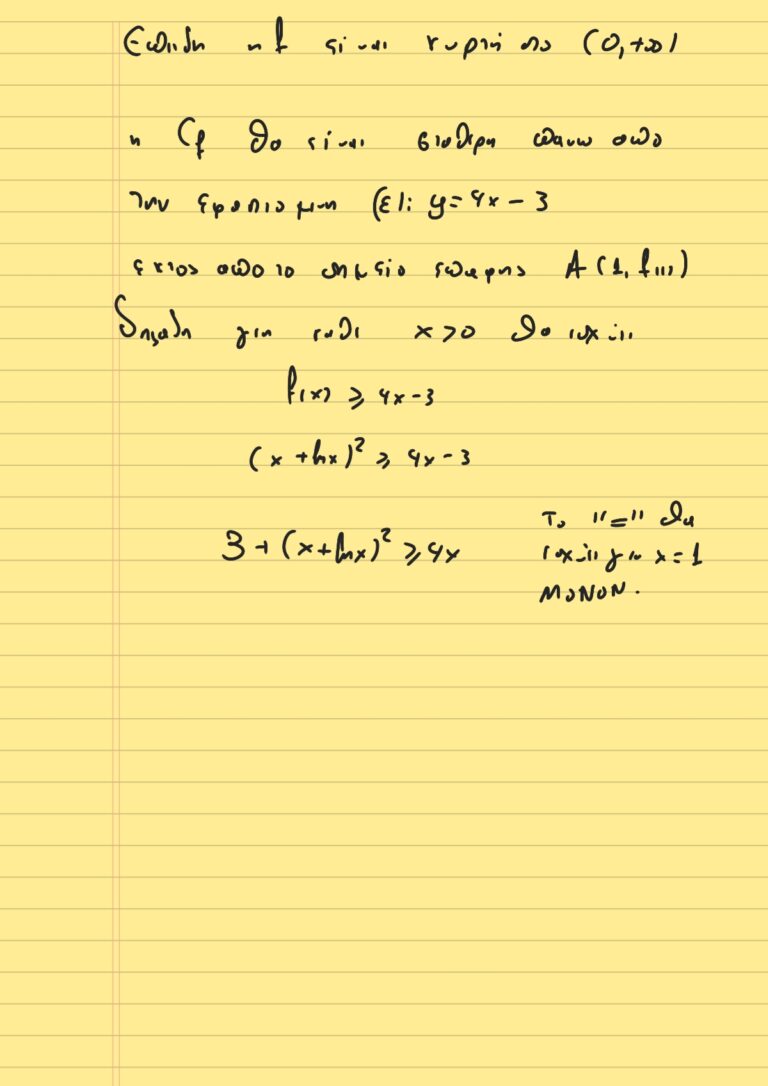 Επειδη η f είναι κυρτή στο (0,+∞)
η Cf θα είναι σταθερα πανω απο
την εφαπτομενη (ε): y=4x-3
εκτος απο το σημείο επαφης A(1, f(1))
δηλαδη για καθε x>0 θα ισχύει
f(x) ⩾ 4x-3
(x+lnx)² ⩾ 4x-3
3+(x+lnx)² ⩾ 4x
Το "=" θα
ισχύει για x=1
ΜΟΝΟΝ.